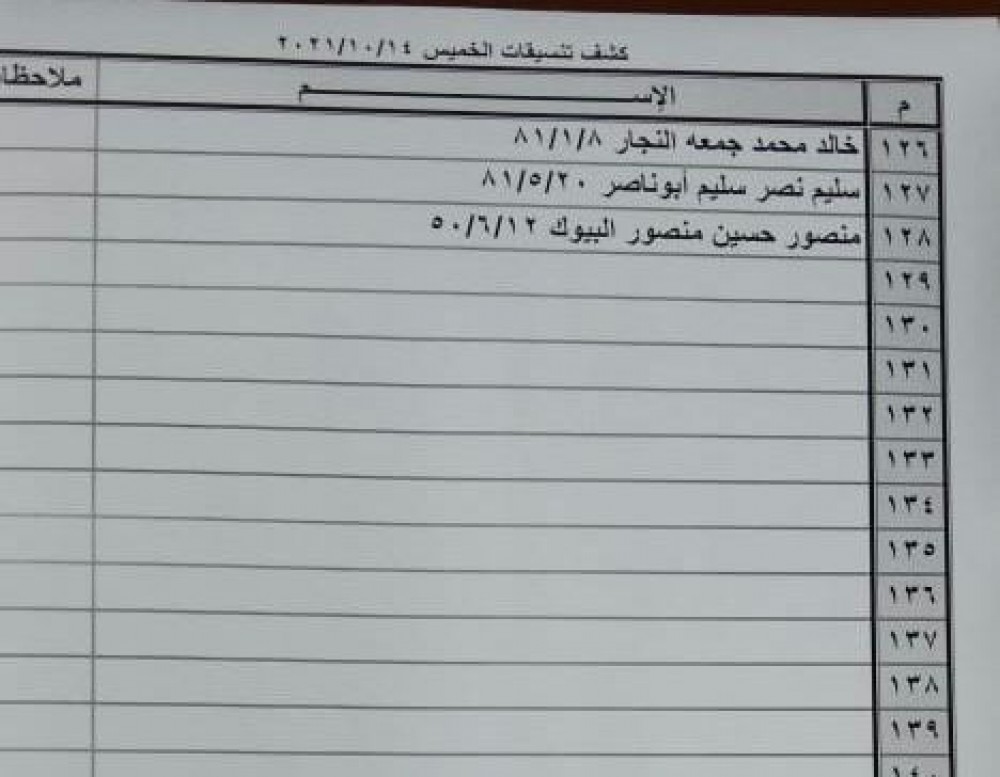 كشف تنسيقات الخميس ٢٠٢١/١٠/١٤
م الإســـــــــــــم ملاحظا
١٢٦ خالد محمد جمعه النجار ٨١/١/٨
١٢٧ سليم نصر سليم أبوناصر ٨١/٥/٢٠
١٢٨ منصور حسين منصور البيوك ٥٠/٦/١٢
١٢٩
١٣٠
١٣١
١٣٢
١٣٣
١٣٤
١٣٥
١٣٦
١٣٧
١٣٨
١٣٩
١٤٠